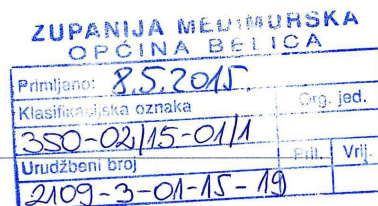 ŽUPANIJA MEĐIMURSKA
OPĆINA BELICA
Primljeno: 8.5.2015.
Klasifikacijska oznaka Org. jed.
350-02/15-01/1
Urudžbeni broj Pril. Vrij.
2109-3-01-15-19